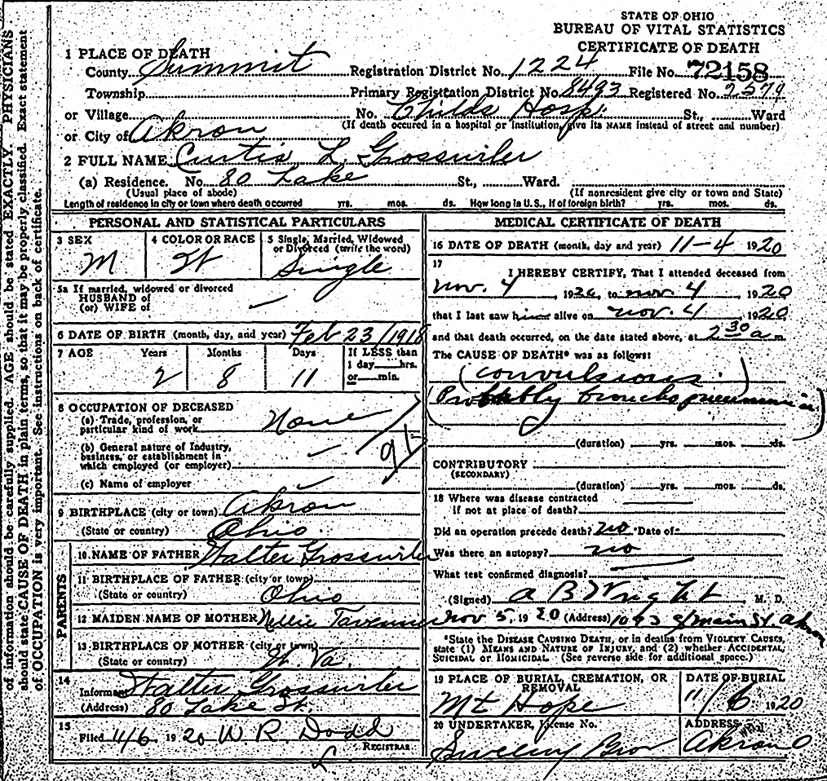 of information should be carefully supplied. AGE should be stated EXACTLY. PHYSICIANS
should state CAUSE OF DEATH in plain terms, so that it may be properly classified. Exact statement
of OCCUPATION is very important. See instructions on back of certificate.
STATE OF OHIO
BUREAU OF VITAL STATISTICS
CERTIFICATE OF DEATH
1 PLACE OF DEATH
County Summit Registration District No. 1224 File No. 72158
Township Primary Registration District No. 8493 Registered No. 2579
or Village No. Childs Hosp. St., Ward
or City of Akron (If death occured in a hospital or institution, give its NAME instead of street and number)
2 FULL NAME Curtis L. Grosswiler
(a) Residence. No. 80 Lake St., Ward.
(Usual place of abode) (If nonresident give city or town and State)
Length of residence in city or town where death occurred yrs. mos. ds. How long in U.S., if of foreign birth? yrs. mos. ds.
PERSONAL AND STATISTICAL PARTICULARS
3 SEX 4 COLOR OR RACE 5 Single, Married, Widowed
or Divorced (write the word)
M W Single
5a If married, widowed or divorced
HUSBAND of
(or) WIFE of —
6 DATE OF BIRTH (month, day, and year) Feb 23/1918
7 AGE Years Months Days If LESS than
1 day hrs.
or min.
2 8 11
8 OCCUPATION OF DECEASED
(a) Trade, profession, or
particular kind of work None
(b) General nature of Industry,
business, or establishment in
which employed (or employer)
(c) Name of employer
9 BIRTHPLACE (city or town) Akron
(State or country) Ohio.
PARENTS
10 NAME OF FATHER Walter Grosswiler
11 BIRTHPLACE OF FATHER (city or town)
(State or country) Ohio
12 MAIDEN NAME OF MOTHER Nellie Tavenner
13 BIRTHPLACE OF MOTHER (city or town)
(State or country) W. Va.
14 Informant Walter Grosswiler
(Address) 80 Lake St.
15 Filed 11/6 1920 W R Dodd
REGISTRAR
MEDICAL CERTIFICATE OF DEATH
16 DATE OF DEATH (month, day and year) 11-4 1920
17 I HEREBY CERTIFY, That I attended deceased from
Nov. 4 1920, to Nov 4 1920
that I last saw him alive on Nov. 4, 1920
and that death occurred, on the date stated above, at 2 30 a m.
The CAUSE OF DEATH* was as follows:
(convulsions)
(Probably bronchopneumonia)
(duration) yrs. mos. ds.
CONTRIBUTORY
(SECONDARY)
(duration) yrs. mos. ds.
18 Where was disease contracted
if not at place of death?
Did an operation precede death? no Date of
Was there an autopsy? no
What test confirmed diagnosis?
(Signed) A B Wright M. D.
Nov 5, 1920 (Address) 1093 S Main St. Akron
*State the DISEASE CAUSING DEATH, or in deaths from VIOLENT CAUSES,
state (1) MEANS AND NATURE OF INJURY, and (2) whether ACCIDENTAL,
SUICIDAL or HOMICIDAL. (See reverse side for additional space.)
19 PLACE OF BURIAL, CREMATION, OR
REMOVAL DATE OF BURIAL
Mt Hope 11/6 1920
20 UNDERTAKER, License No. ADDRESS
Sweeny Bros Akron O